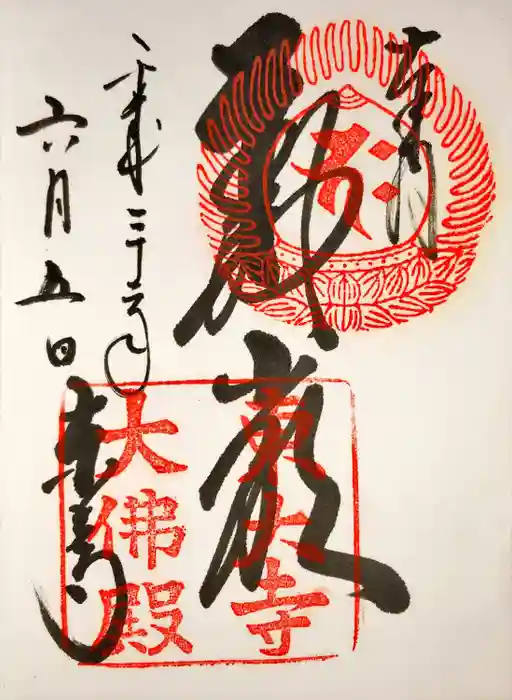 奉拝
華嚴
東大寺
大佛殿
平成二十六年
六月五日
東大寺